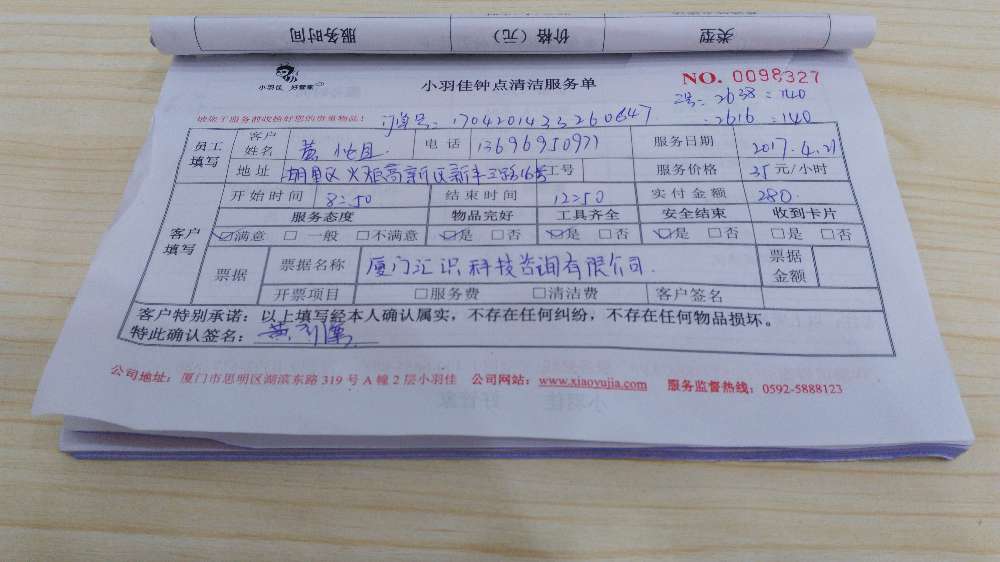 类型 价格（元） 服务时间
小羽佳 好管家
小羽佳钟点清洁服务单
NO. 0098327
工号: 2638 = 140
: 2616 = 140
订单号: 1704201433260647
员工填写
客户姓名 黄 电话 13696950971 服务日期 2017.4.21
地址 湖里区火炬高新区新丰三路16号 工号 服务价格 35元/小时
开始时间 8:50 结束时间 12:50 实付金额 280.
客户填写
服务态度 物品完好 工具齐全 安全结束 收到卡片
☑满意 □一般 □不满意 ☑是 □否 ☑是 □否 ☑是 □否 □是 □否
票据 票据名称 厦门汇识科技咨询有限公司. 票据金额
开票项目 □服务费 □清洁费 客户签名
客户特别承诺：以上填写经本人确认属实，不存在任何纠纷，不存在任何物品损坏。
特此确认签名: 黄
公司地址：厦门市思明区湖滨东路319号A幢2层小羽佳 公司网站：www.xiaoyujia.com 服务监督热线：0592-5888123